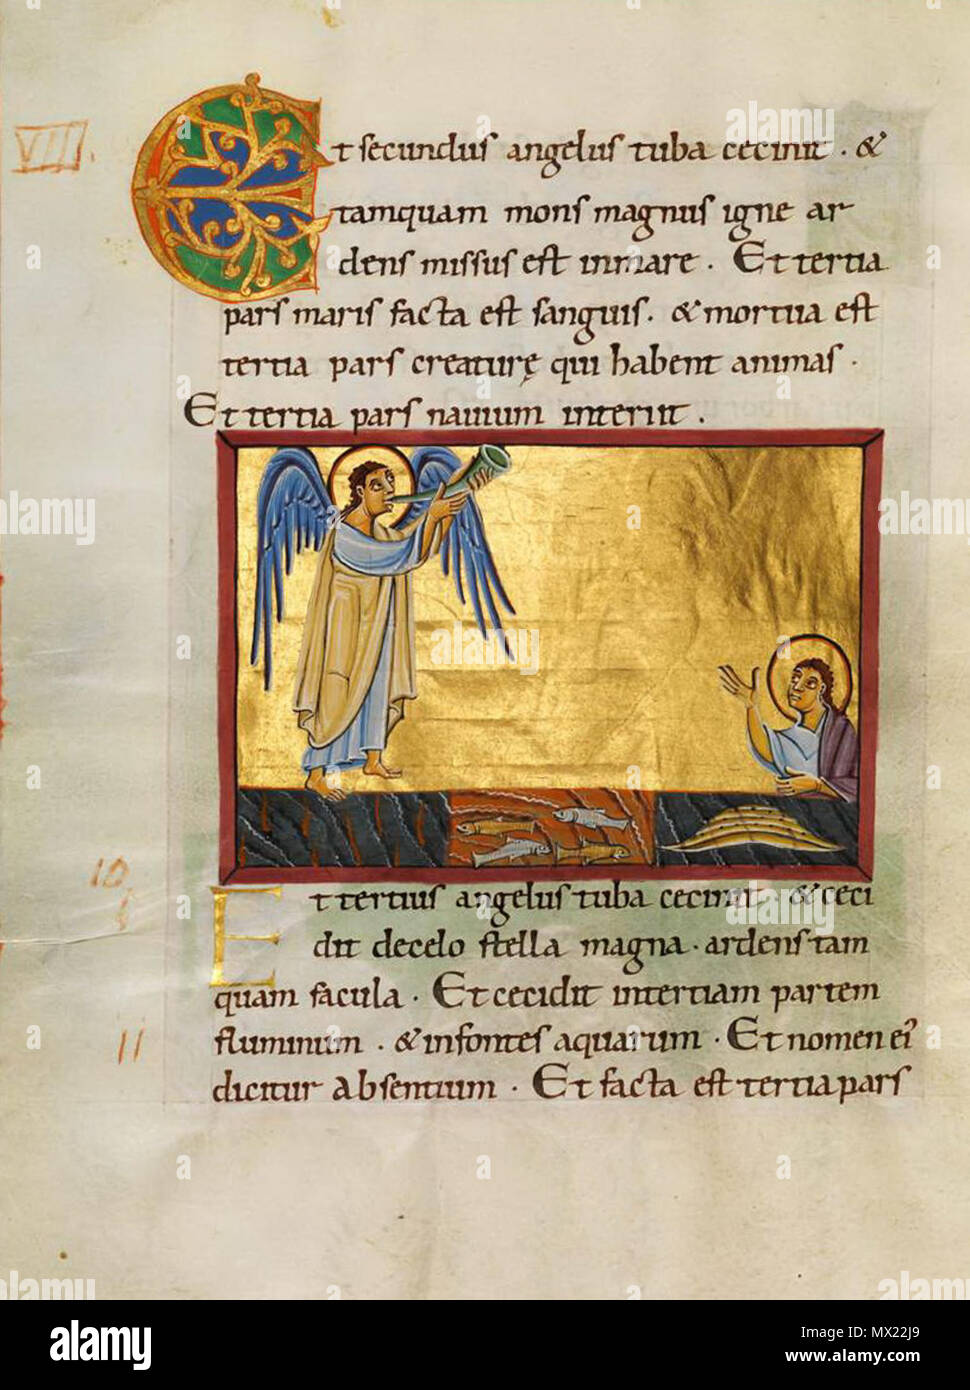 VIII.
Et secundus angelus tuba cecinit . &
tamquam mons magnus igne ar
dens missus est inmare . Et tertia
pars maris facta est sanguis . & mortua est
tertia pars creaturę qui habent animas .
Et tertia pars navium interiit .
10
Et tertius angelus tuba cecinit . & ceci
dit decelo stella magna . ardens tam
quam facula . Et cecidit intertiam partem
11
fluminum . & infontes aquarum . Et nomen ei'
dicitur absentium . Et facta est tertia pars
alamy
Image ID: MX22J9
www.alamy.com